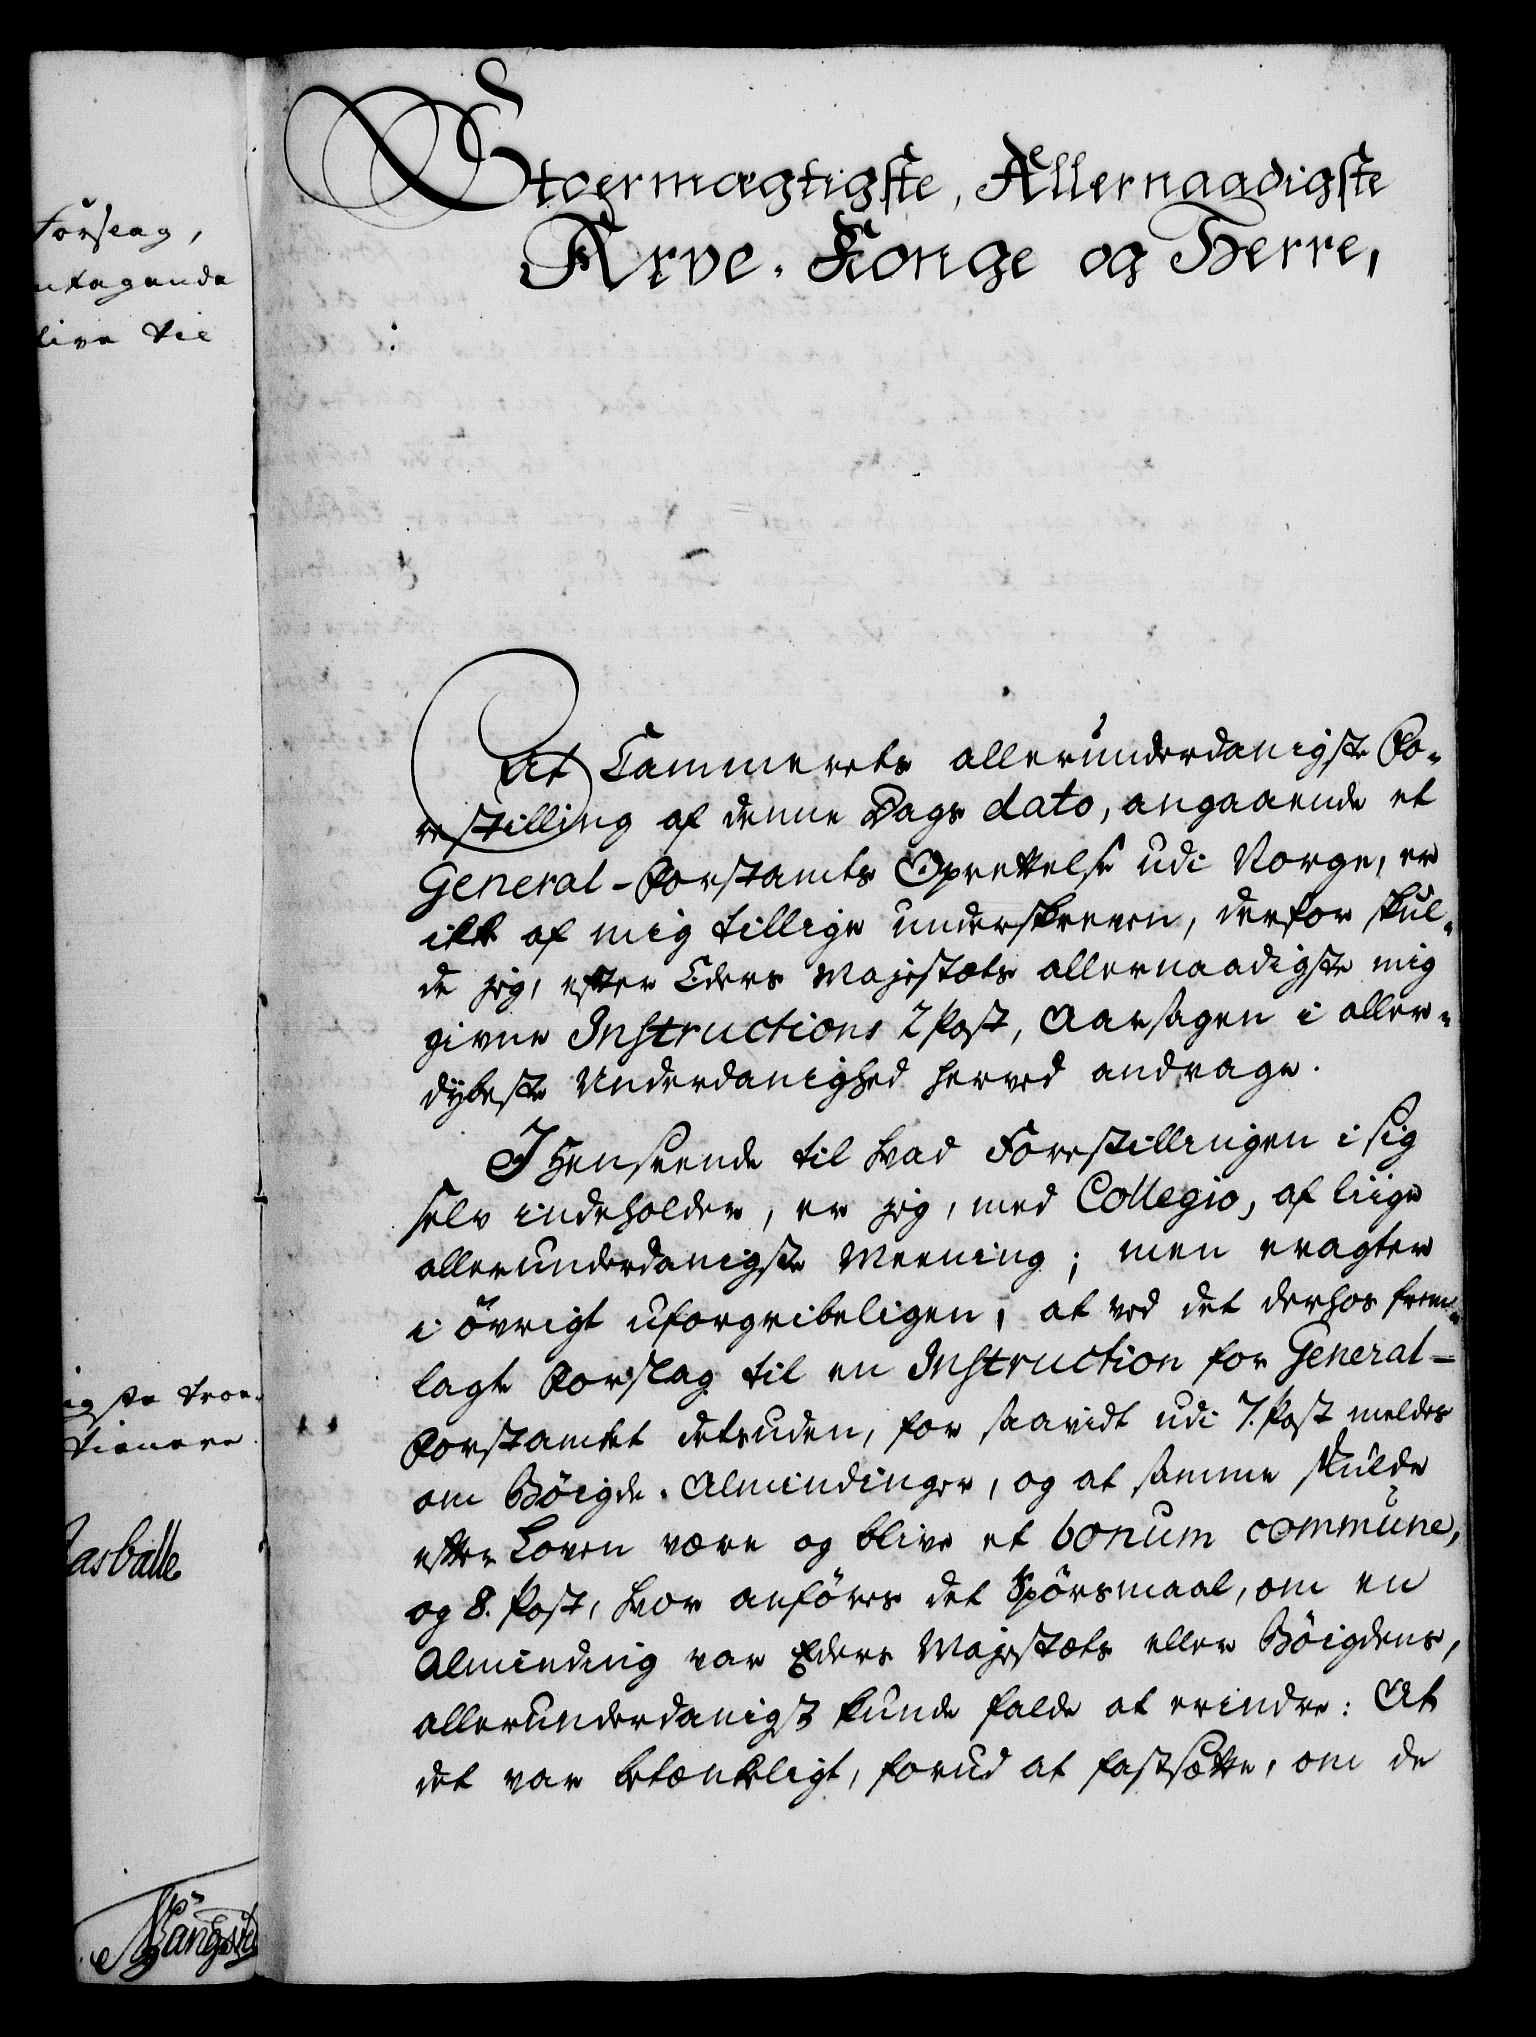 Forslag,
ntagende
live til
igste troe-
tienere
Stormægtigste, Allernaadigste
Arve-Konge og Herre,
At Cammerets allerunderdanigste Fo-
restilling af denne Dags dato, angaaende et
General-Forstamts Oprettelse udi Norge, er
ikke af mig tillige underskreven, derfor skul-
de jeg, efter Eders Majestæts allernaadigste mig
givne Instructions 2 Post, Aarsagen i aller-
dybeste Underdanighed herved andrage.
I Henseende til hvad Forestillingen i sig
selv indeholder, er jeg, med Collegio, af liige
allerunderdanigste Meening; men eragter
i øvrigt uforgribeligen, at ved det derhos frem-
lagte Forslag til en Instruction for General-
Forstamtet desuden, for saavidt udi 7. Post meldes
om Böigde-Almindinger, og at samme skulde
efter Loven være og blive et bonum commune,
og 8. Post, hvor anföres det Spörsmaal, om en
Alminding var Eders Majestæts eller Böigdens,
allerunderdanigst kunde falde at erindre: At
det var betænkeligt, forud at fastsætte, om de